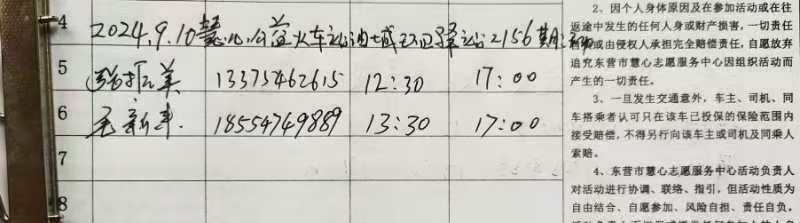 4
2024.9.10慧心公益火车站油城卫士驿站2156期活动
5
张振美 13375462615 12:30 17:00
6
毛新华 18554749889 13:30 17:00
7
8
2、因个人身体原因及在参加活动或在往
返途中发生的任何人身或财产损害，一切责
或由侵权人承担完全赔偿责任，自愿放弃
追究东营市慧心志愿服务中心因组织活动而
产生的一切责任。
3、一旦发生交通意外，车主、司机、同
车搭乘者认可只在该车已投保的保险范围内
接受赔偿，不得另行向该车主或司机及同乘人
索赔。
4、东营市慧心志愿服务中心活动负责人
对活动进行协调、联络、指引，但活动性质为
自由结合、自愿参加、风险自担、责任自负，